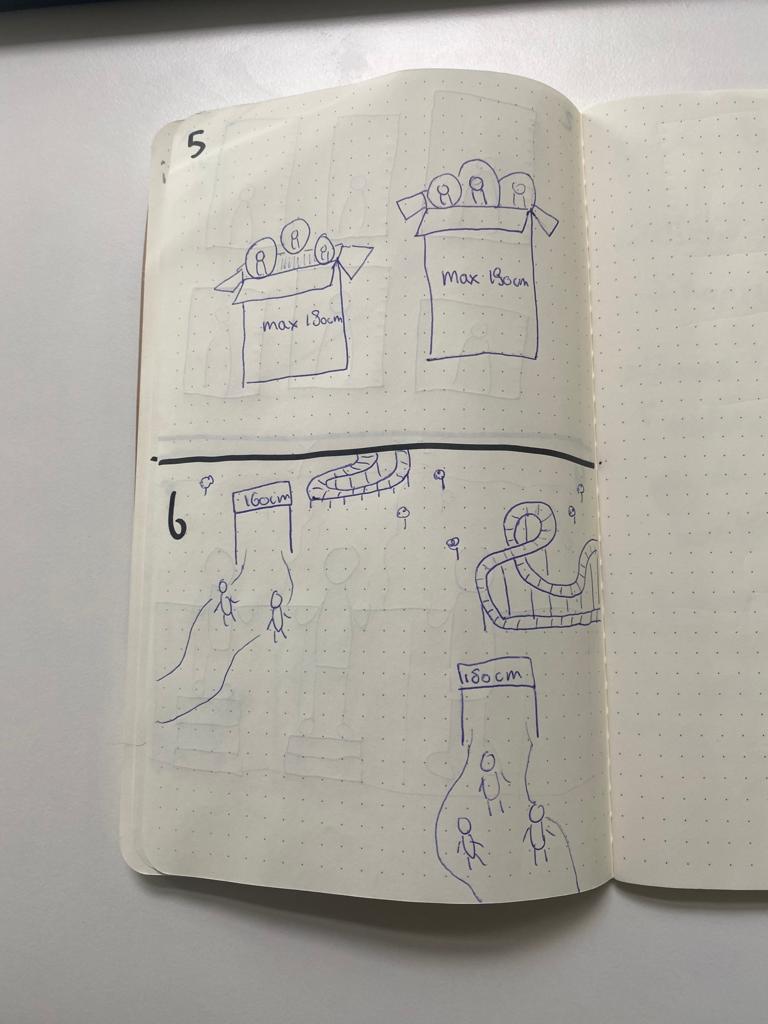 5
max 180cm
max 190cm
6
160cm
180cm